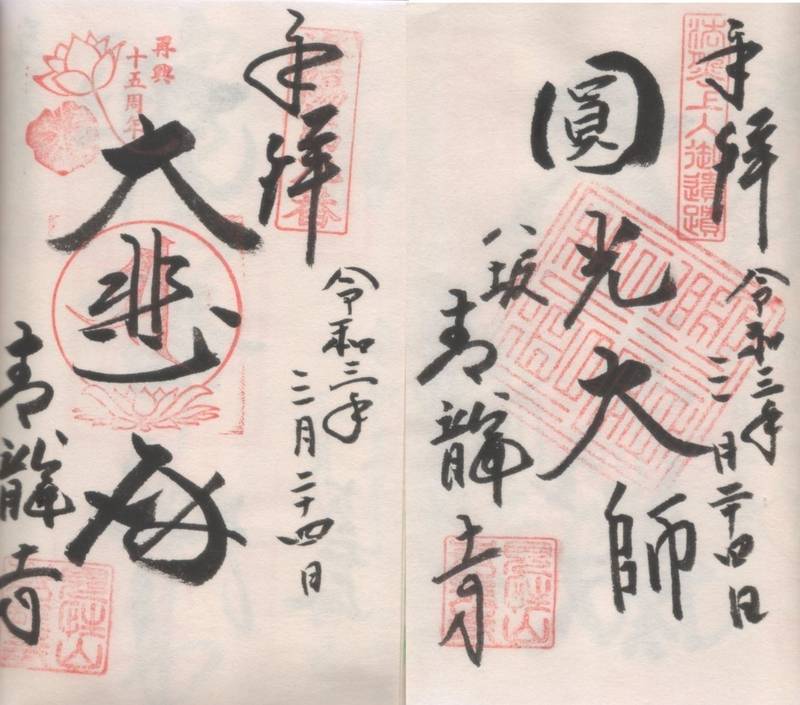 奉拝
法然上人御遺蹟
令和三年三月二十四日
圓光大師
八坂
青龍寺
奉拝
令和三年三月二十四日
再興
十五周年
大悲殿
青龍寺